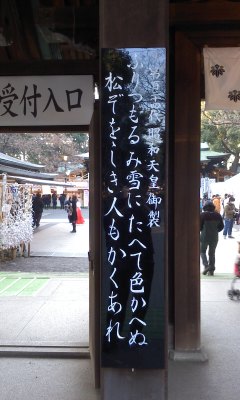 受付入口
第百二十四代 昭和天皇御製
ふりつもるみ雪にたへて色かへぬ
松ぞをゝしき人もかくあれ